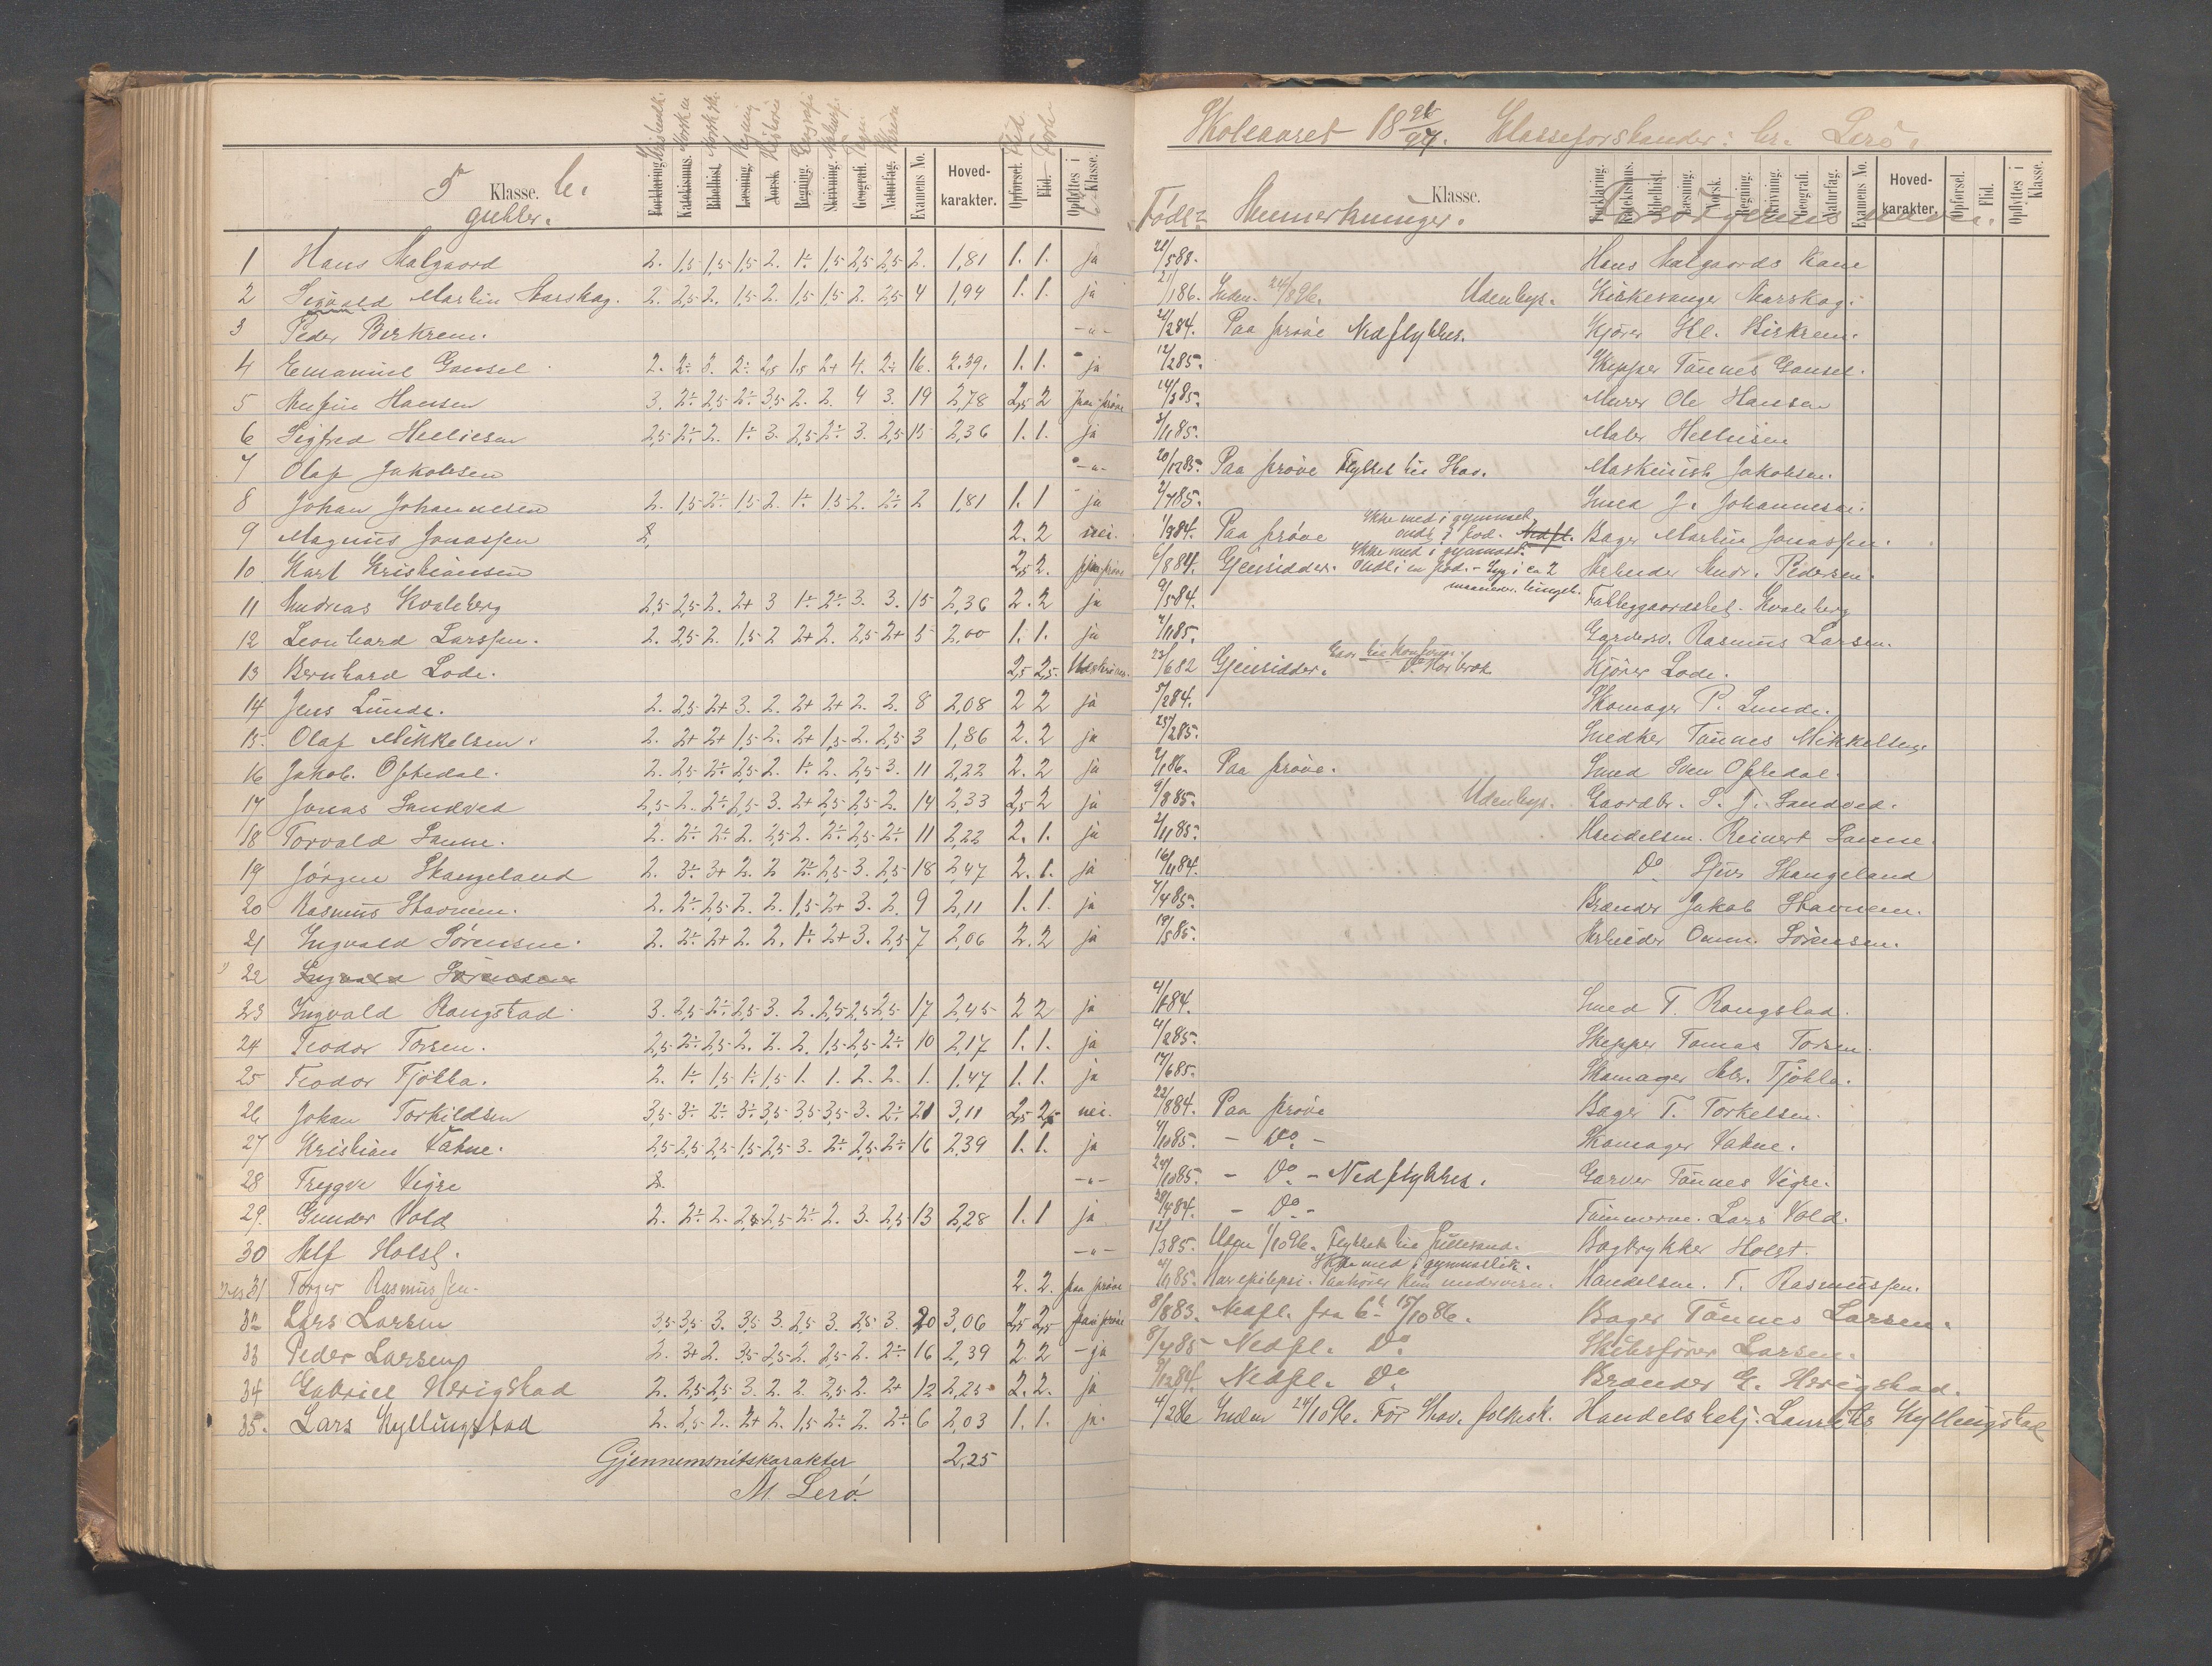 5 Klasse. b.
gutter.
Forklaring. Katekismus. Bibelhist. Læsning. Norsk. Regning. Skrivning. Geografi. Naturfag. Examens No. Hoved-karakter. Opførsel. Flid. Opflyttes i Klasse.
1 Hans Malgaard 2. 1,5 1,5 1,5 2. 1÷ 1,5 2,5 2,5 2. 1,81 1. 1. ja
2 Sigvald Martin Harskog. 2. 2,5 2. 1,5 2. 1,5 1,5 2. 2,5 4 1,94 1. 1. ja
3 Peder Birkrem. -"-
4 Emanuel Gausel 2. 2÷ 3. 2÷ 2,5 1,5 2+ 4. 2÷ 16. 2.39. 1. 1. ja
5 Hansen 3. 2÷ 2,5 2÷ 3,5 2. 2. 4 3. 19 2,78 2,5 2 prøve
6 Sigfred Helliesen 2,5 2÷ 2. 1÷ 3. 2,5 2÷ 3. 2,5 15 2,36 1. 1. ja
7 Olaf Jakobsen -"-
8 Johan Johannesen 2. 1,5 2÷ 1,5 2. 1÷ 1,5 2. 2÷ 2 1,81 1. 1 ja
9 Magnus Jonassen 2. 2. 2 nei.
10 Karl Kristiansen 2,5 2. prøve
11 Andreas Kvaleberg 2,5 2,5 2. 2+ 3 1÷ 2÷ 3. 3. 15 2,36 2. 2 ja
12 Leonhard Larssen. 2. 2,5 2. 1,5 2 2+ 2. 2,5 2+ 5 2,00 1. 1. ja
13 Bernhard Lode. 2,5 2,5. Udskrives.
14 Jens Lunde. 2. 2,5 2+ 3. 2. 2+ 2+ 2. 2. 8 2,08 2 2 ja
15. Olaf Mikkelsen. 2. 2+ 2+ 1,5 2. 2+ 1,5 2. 2,5 3 1,86 2. 2 ja
16 Jakob. Oftedal. 2. 2,5 2÷ 2,5 2. 1÷ 2. 2,5 3. 11 2,22 2. 2 ja
17 Jonas Sandved 2,5 2. 2÷ 2,5 3. 2+ 2,5 2,5 2. 14 2,33 2,5 2 ja
18 Torvald Sanne. 2. 2÷ 2÷ 2. 2,5 2. 2÷ 2,5 2÷ 11 2,22 2. 1. ja
19 Jørgen Skangeland 2. 3÷ 3+ 2. 2 2÷ 2,5 3. 2,5 18 2,47 2. 1. ja
20 Rasmus Stavnem. 2. 2÷ 2,5 2. 2. 1,5 2+ 3. 2. 9 2,11 1. 1. ja
21 Ingvald Sørensen. 2. 2÷ 2+ 2. 2. 1÷ 2+ 3. 2,5 7 2,06 2. 2 ja
22 Ingvald Sørensen
23 Ingvald Rangstad 3. 2,5 2÷ 2,5 3. 2. 2,5 2,5 2,5 17 2,45 2 2 ja
24 Teodor Torsen. 2,5 2÷ 2,5 2. 2. 2. 1,5 2,5 2÷ 10 2,17 1. 1. ja
25 Teodor Tjøtta. 2. 1÷ 1,5 1÷ 1,5 1. 1. 2. 2. 1. 1,47 1. 1. ja
26 Johan Torkildsen 3,5 3÷ 2÷ 3÷ 3,5 3,5 3,5 3. 2÷ 21 3,11 2,5 2,5 nei.
27 Kristian Vatne. 2,5 2,5 2,5 1,5 2,5 3. 2÷ 2,5 2÷ 16 2,39 1. 1. ja
28 Trygve Vigre 2. -"-
29. Gunder Vold 2. 2÷ 2. 2,5 2,5 2÷ 2. 3. 2,5 13 2,28 1. 1 ja
30 Alf Holst. -"-
31 Torger Rasmussen. 2. 2. paa prøve
32 Lars Larsen 3,5 3,5 3. 3,5 3. 2,5 3. 2,5 3. 20 3,06 2,5 2,5 paa prøve
33 Peder Larsen 2. 3+ 2. 3,5 2,5 2. 2,5 2. 2÷ 16 2,39 2 2 - ja
34 Gabriel Herigstad 2. 2,5 2,5 3. 2. 2. 2,5 2. 2+ 12 2,25 2. 2. ja
35. Lars Kyllingstad 2. 2,5 2. 2+ 2. 1,5 2÷ 2. 2÷ 6 2,03 1. 1. ja
Gjennemsnitskarakter 2,25
M. Lerø.
Skoleaaret 1896/97. Klasseforstander: hr. Lerø.
Klasse.
Forklaring. Katekismus. Bibelhist. Læsning. Norsk. Regning. Skrivning. Geografi. Naturfag. Examens No. Hoved-karakter. Opførsel. Flid. Opflyttes i Klasse.
Født: Anmerkninger. Forsørgerens navn.
Hans Malgaards Kone
21/1 86. Inden. 24/8 96. Udenbys. Kirkesanger Harskog.
2/2 84. Paa prøve Nedflyttes. Kjører Birkrem.
12/2 85. Skipper Tønnes Gausel.
14/3 85. Murer Ole Hansen
3/11 85. Maler Helliesen
20/12 85. Paa prøve Flyttet til Hav. Maskinist Jakobsen.
2/7 85. Smed J. Johannesen.
1/9 84. Paa prøve Ikke med i gymnast. ondt i fod. Nedfl. Bager Martin Jonassen.
6/8 84. Gjensidder. Ikke med i gymnast. Ondt i en fod. - Syg i ca 2 maaneder. Arbeider Andr. Pedersen.
9/5 84. Fattiggaardsbst. Kvaleberg
7/1 85. Garderob. Rasmus Larsen.
23/6 82 Gjensidder. Do Har brok. Kjører Lode.
5/2 84. Skomager P. Lunde.
25/2 85. Snedker Tønnes Mikkelsen.
2/1 86. Paa prøve. Smed Sven Oftedal.
9/8 85. Udenbys. Gaardbr. S. J. Sandved.
2/11 85. Handelsm. Reinert Sanne.
16/4 84. Do Sjur Skangeland
7/4 85. Brænder Jakob Stavnem.
19/5 85. Arbeider Omm. Sørensen.
Smed T. Rangstad.
4/2 85. Skipper Tomas Torsen.
17/6 85. Skomager Tjøtta.
22/8 84. Paa prøve Bager T. Torkelsen.
4/10 85. - Do - Skomager Vatne.
24/10 85. - Do - Nedflyttes. Garver Tønnes Vigre.
28/4 84. - Do - Tømmerm. Lars Vold.
12/3 85. Udgn 1/10 96. Flyttet til Lillesand. Bogtrykker Holst.
Ikke med i gymnastik.
Har epilepsi. Handelsm. T. Rasmussen.
8/8 83. Nedfl. fra 6 15/10 86. Bager Tønnes Larsen.
8/4 85 Nedfl. Do Skibsfører Larsen.
9/12 84. Nedfl. Do Brænder G. Herigstad.
4/2 86 Inden 24/10 96. Før Stav. folkesk. Handelsbetj. Laurits Kyllingstad